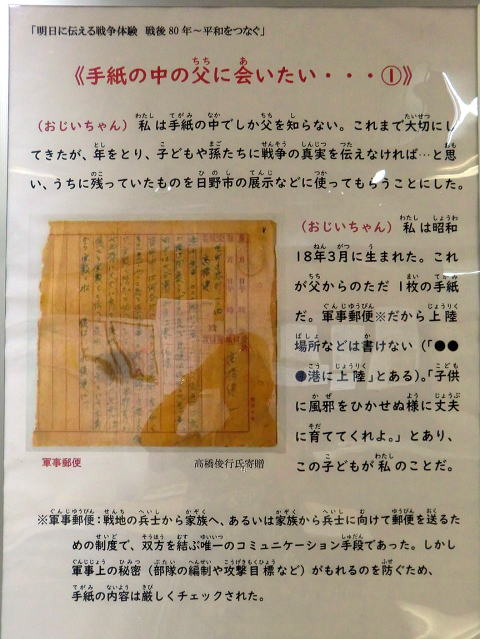 「明日に伝える戦争体験 戦後80年～平和をつなぐ」
《手紙の中の父に会いたい・・・①》
（おじいちゃん）私は手紙の中でしか父を知らない。これまで大切にし
てきたが、年をとり、子どもや孫たちに戦争の真実を伝えなければ…と思
い、うちに残っていたものを日野市の展示などに使ってもらうことにした。
（おじいちゃん）私は昭和
18年3月に生まれた。これ
が父からのただ1枚の手紙
だ。軍事郵便※だから上陸
場所などは書けない（「●●
●港に上陸」とある）。「子供
に風邪をひかせぬ様に丈夫
に育ててくれよ。」とあり、
この子どもが私のことだ。
軍事郵便
高橋俊行氏寄贈
※軍事郵便：戦地の兵士から家族へ、あるいは家族から兵士に向けて郵便を送るた
めの制度で、双方を結ぶ唯一のコミュニケーション手段であった。しかし
軍事上の秘密（部隊の編制や攻撃目標など）がもれるのを防ぐため、
手紙の内容は厳しくチェックされた。